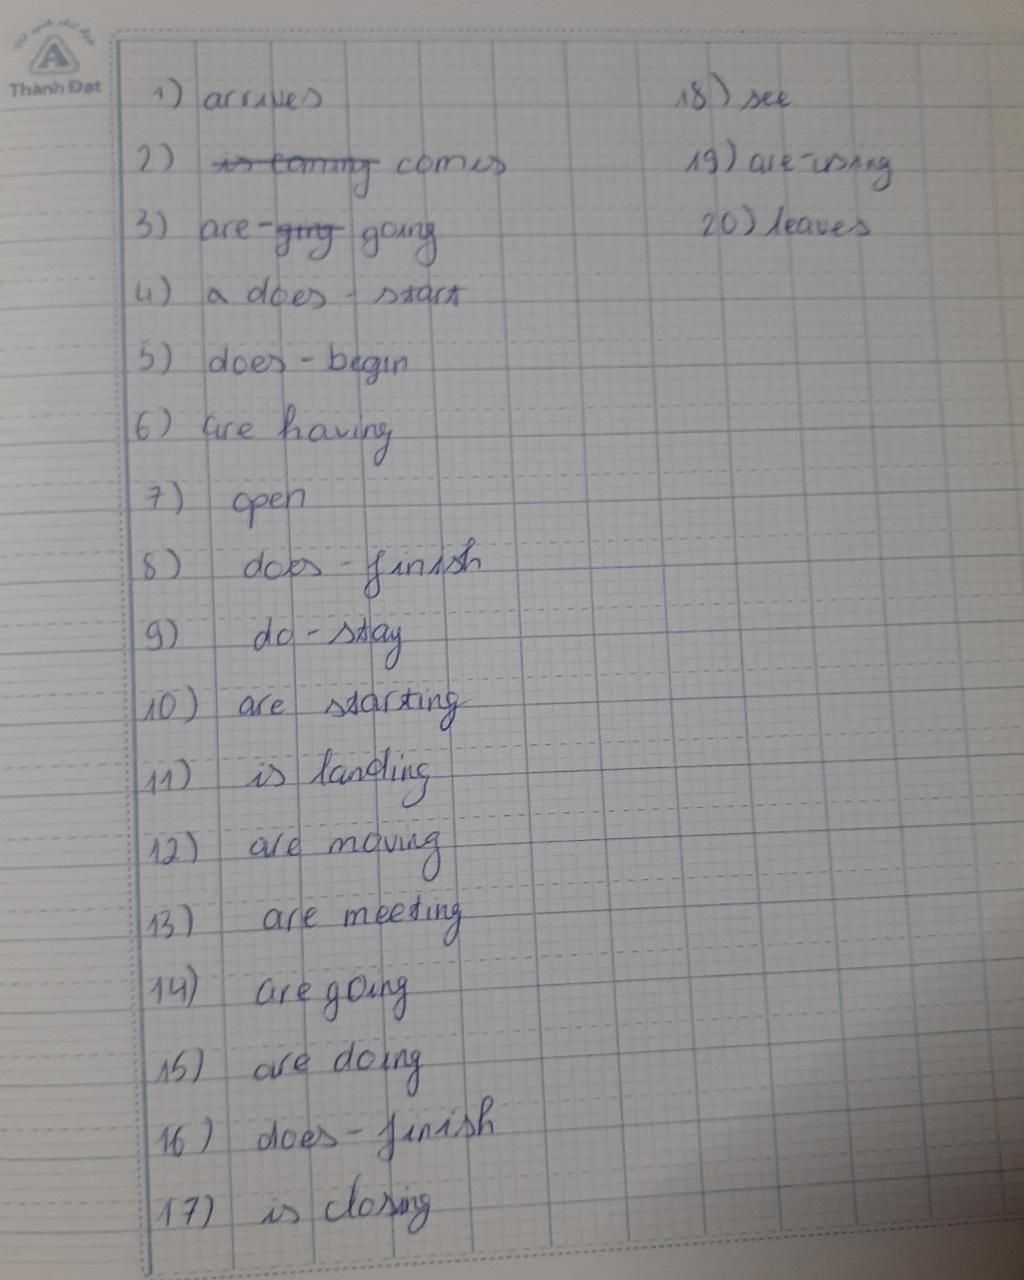 A
Thành Đạt
1) arrives
2) is coming comes
3) are - going
4) a does - start
5) does - begin
6) are having
7) open
8) does - finish
9) do - stay
10) are starting
11) is landing
12) are moving
13) are meeting
14) are going
15) are doing
16) does - finish
17) is closing
18) see
19) are - using
20) leaves